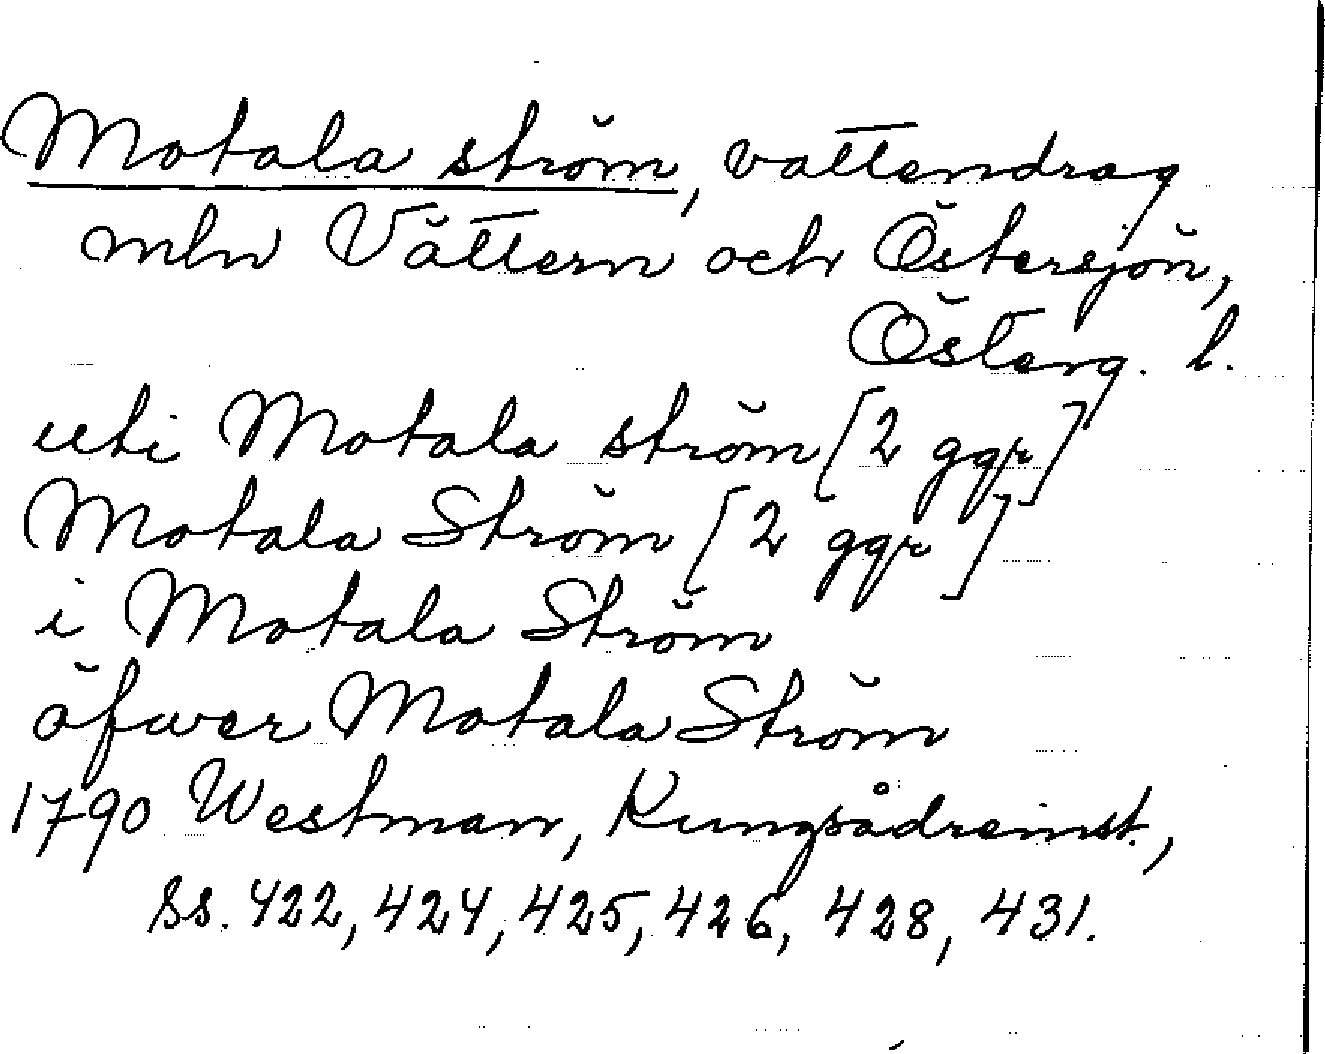 Motala ström, vattendrag
mln Vättern och Östersjön,
Österg. l.
uti Motala ström [2 ggr]
Motala Ström [2 ggr]
i Motala Ström
öfwer Motala Ström
1790 Westman, Kungsådreinst.,
ss. 422, 424, 425, 426, 428, 431.